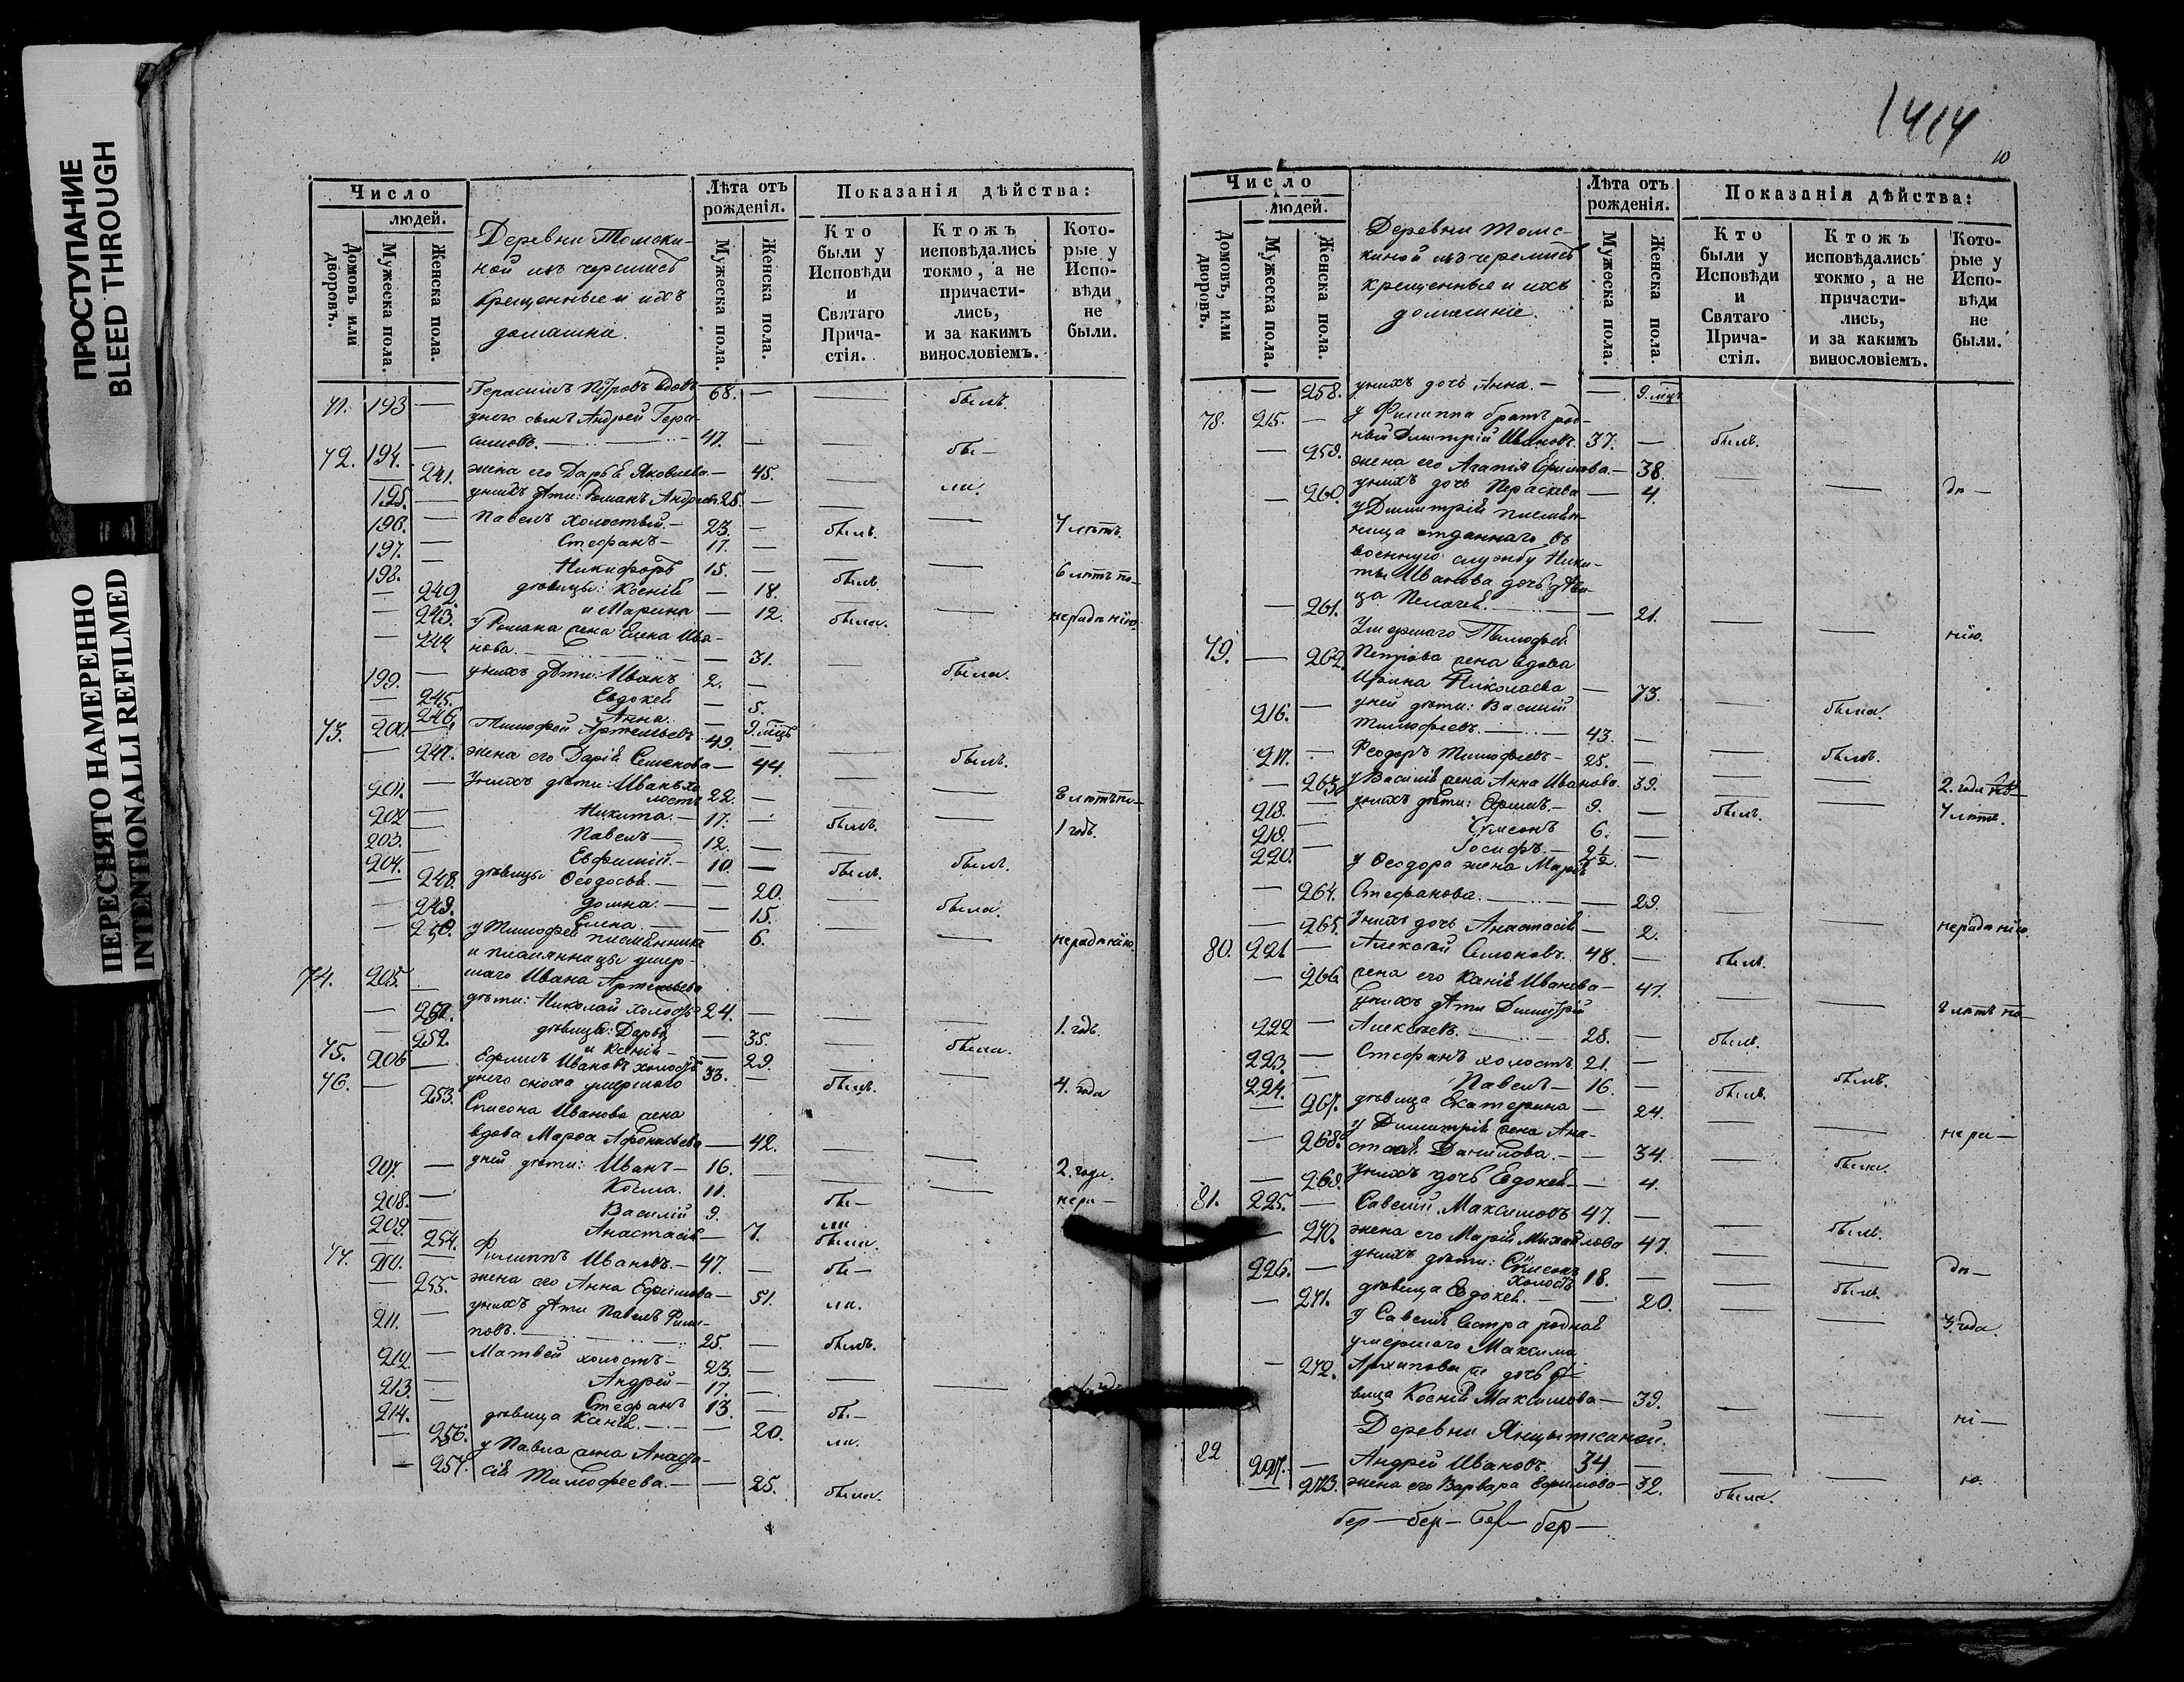 ПРОСТУПАНИЕ
BLEED THROUGH
ПЕРЕСНЯТО НАМЕРЕННО
INTENTIONALLI REFILMED
Число
людей.
Домовъ или дворовъ.
Мужеска пола.
Женска пола.
Деревни Томски-
ной изъ черемисъ
крещенные и ихъ
домашни.
Лѣта отъ рожденія.
Мужеска пола.
Женска пола.
Показанія дѣйства:
Кто были у Исповѣди и Святаго Причастія.
Ктожъ исповѣдались токмо, а не причастились, и за какимъ винословіемъ.
Которые у Исповѣди не были.
71. 193 — Герасимъ Петровъ вдовъ 68. — — былъ.
у него сынъ Андрей Гера-
72. 194. — симовъ. — 47. — — бы—
— 241. жена его Дарья Яковлева — 45. — ли.
195. — у нихъ дѣти: Романъ Андреевъ 25. —
196. — Павелъ холостый. — 23. — былъ. — 4 лѣтъ.
197. — Стефанъ — 17. —
198. — Никифоръ 15. — былъ 6 лѣтъ по—
— 242. дѣвицы: Ксенія — 18.
— 243. и Марина — 12. была. — нерадѣнію.
— 244 у Романа жена Елена Ива-
нова. — 31. — была.
199. — у нихъ дѣти: Иванъ 2. —
— 245. Евдокея — 5.
— 246. Анна. — 9. мѣцъ
73. 200. — Тимофей Артемьевъ 49. — — былъ.
— 247. жена его Дарія Семенова — 44.
201. — У нихъ дѣти: Иванъ хо-
лостъ 22. — — 8 лѣтъ по—
202 — Никита. — 17. — былъ. — 1 годъ.
203. — Павелъ — 12. —
204. — Евфимій. — 10. — былъ. былъ.
— 248. дѣвицы Ѳеодосья. — — 20.
— 249. Домна. — — 15. — была.
— 250. Елена — — 6. — нерадѣнію.
у Тимофея племянника
и племянницы умер-
74. 205. шаго Ивана Артемьева
дѣти: Николай холостъ 24. — — 1. годъ.
— 251. дѣвицы: Дарья — 35. — была.
— 252. и Ксенія — — 29.
75. 206 — Ефимъ Ивановъ холостъ 33. — былъ. — 4. года
76. — 253. у него сноха умершаго
Симеона Иванова жена
вдова Марѳа Афонасьева — 42. — 2. года.
207. — у ней дѣти: Иванъ — 16. —
208. — Косма. 11. бы— нера—
209. — Василій 9. ли
— 254. Анастасія — 7. была.
77. 210. — Филиппъ Ивановъ. — 47. — бы—
— 255. жена его Анна Ефимова — 51. ли.
211. — у нихъ дѣти Павелъ Фили-
повъ. — 25. — былъ.
212. — Матвей холостъ — 23.
213. — Андрей — 17. —
214. — Стефанъ 13. — бы—
— 256. дѣвица Ксенія. — — 20. ли.
— 257. у Павла жена Анаста-
сія Тимофеева. — — 25. была.
1414
10
Число
людей.
Домовъ, или дворовъ.
Мужеска пола.
Женска пола.
Деревни Томс-
киной изъ черемисъ
крещенные и ихъ
домашніе.
Лѣта отъ рожденія.
Мужеска пола.
Женска пола.
Показанія дѣйства:
Кто были у Исповѣди и Святаго Причастія.
Ктожъ исповѣдались токмо, а не причастились, и за какимъ винословіемъ.
Которые у Исповѣди не были.
— 258. у нихъ дочь Анна. — — 9. мѣцъ
78. 215. — у Филиппа братъ род-
ный Димитрій Ивановъ. 37. — былъ.
— 259. жена его Агапія Ефимова — 38. — дѣ—
— 260. у нихъ дочь Параскева — 4.
у Димитрія племян-
ница отданнаго въ
военную службу Ники-
ты Иванова дочь дѣви-
— 261. ца Пелагея. — 21. — нію.
Умершаго Тимофея
79. — 262. Петрова жена вдова
Ирина Николаева — 73. — была.
216. — у ней дѣти: Василий
Тимофеевъ. — 43. — былъ.
217. — Ѳеодоръ Тимофеевъ — 25. — 2. года
— 263. у Василія жена Анна Иванова. 39.
218. — у нихъ дѣти: Ефимъ — 9. — былъ. 4 лѣтъ.
219. — Симеонъ 6. —
220. — Іосифъ. — 2½ —
у Ѳеодора жена Марья
— 264. Стефанова. — 29.
— 265. У нихъ дочь Анастасія — 2. нерадѣнію.
80. 221 — Алексѣй Симоновъ. 48. — былъ.
— 266. жена его Ксенія Иванова — 47. — 2 лѣтъ по—
у нихъ дѣти Димитрій
222 — Алексѣевъ. — 28. — былъ.
223. — Стефанъ холостъ. 21. — былъ.
224. — Павелъ — 16 — былъ.
— 267. дѣвица Екатерина — 24. — нера—
— 268. у Димитрія жена Ана-
стасія Данилова. — — 34. — была.
— 269. У нихъ дочь Евдокея — — 4.
81. 225. — Савелій Максимовъ 47. — былъ.
— 270. жена его Марія Михайлова 47. — дѣ—
226. — у нихъ дѣти: Симеонъ
холостъ 18. — былъ.
— 271. дѣвица Евдокея. — — 20. — 3. года.
у Савелія сестра родная
умершаго Максима
— 272. Архипова дочь дѣ-
вица Ксенія Максимова — 39. — ні—
Деревни Янцыткиной.
82 227. — Андрей Ивановъ. 34 — ю.
— 273. жена его Варвара Ефимова — 32. была.
бер — бер — бер — бер —